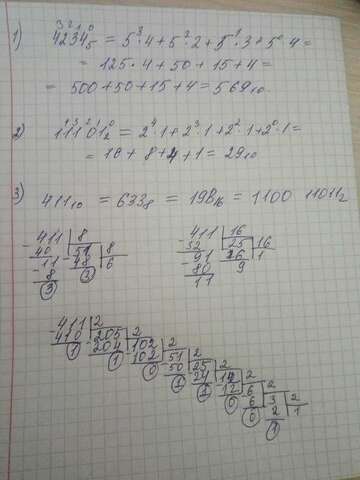 3 2 1 0
1) 4234₅ = 5³·4+5²·2+5¹·3+5⁰·4=
= 125·4+50+15+4=
= 500+50+15+4=569₁₀
4 3 2 1 0
2) 11101₂ = 2⁴·1+2³·1+2²·1+2⁰·1=
= 16+8+4+1=29₁₀
3) 411₁₀ = 633₈ = 19B₁₆ = 1100 11011₂
-411 | 8
40 | 51 | 8
-11 -48 | 6
8 3
3
-411 | 16
32 | 25 | 16
-91 16 | 1
80 9
11
-411 | 2
410 | 205 | 2
1 204 | 102 | 2
1 102 | 51 | 2
0 50 | 25 | 2
1 24 | 12 | 2
1 12 | 6 | 2
0 6 | 3 | 2
0 2 | 1
1